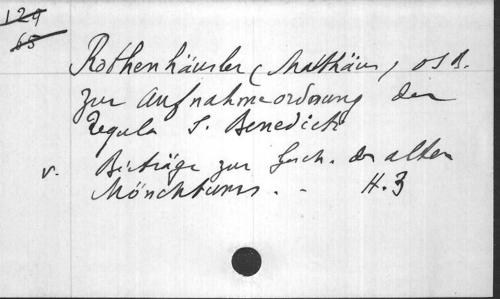 129
65
Rothenhäusler (Matthäus) OSB.
zur Aufnahmeordnung der
Regula S. Benedicti
v. Beiträge zur Gesch. des alten
Mönchtums. - H. 3